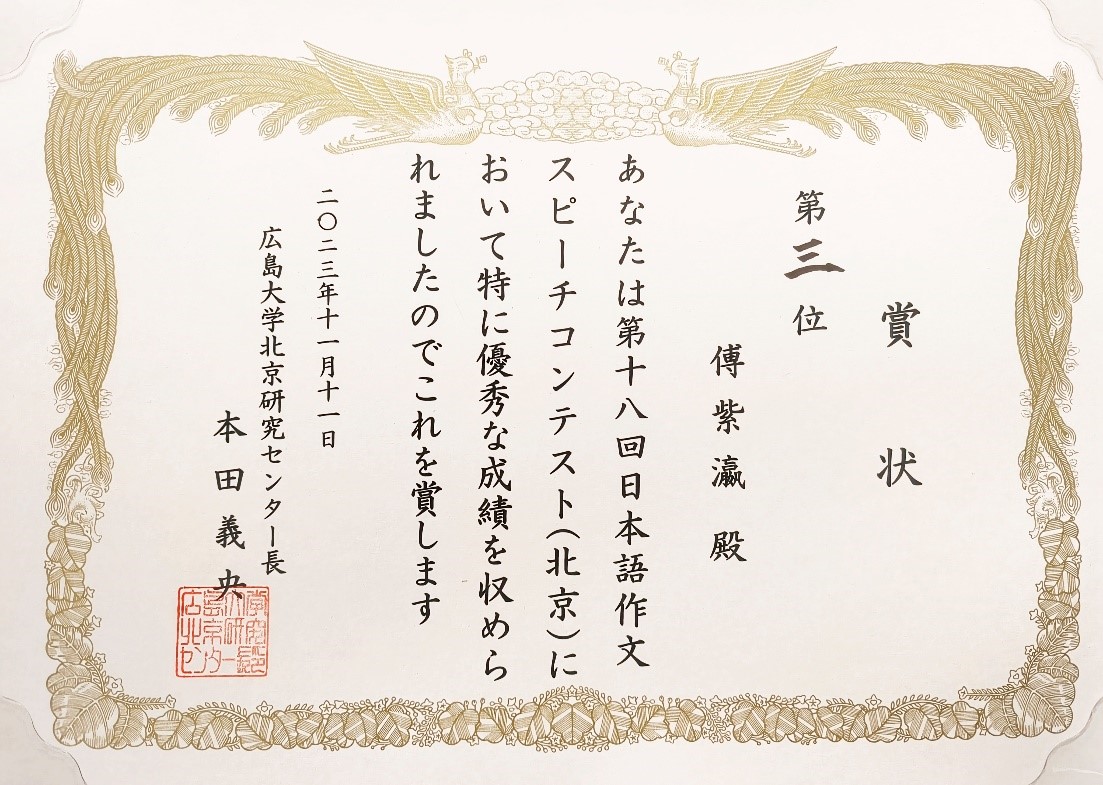 賞状
第三位
傅紫瀛殿
あなたは第十八回日本語作文
スピーチコンテスト(北京)に
おいて特に優秀な成績を収めら
れましたのでこれを賞します
二〇二三年十一月十一日
広島大学北京研究センター長
本田義央